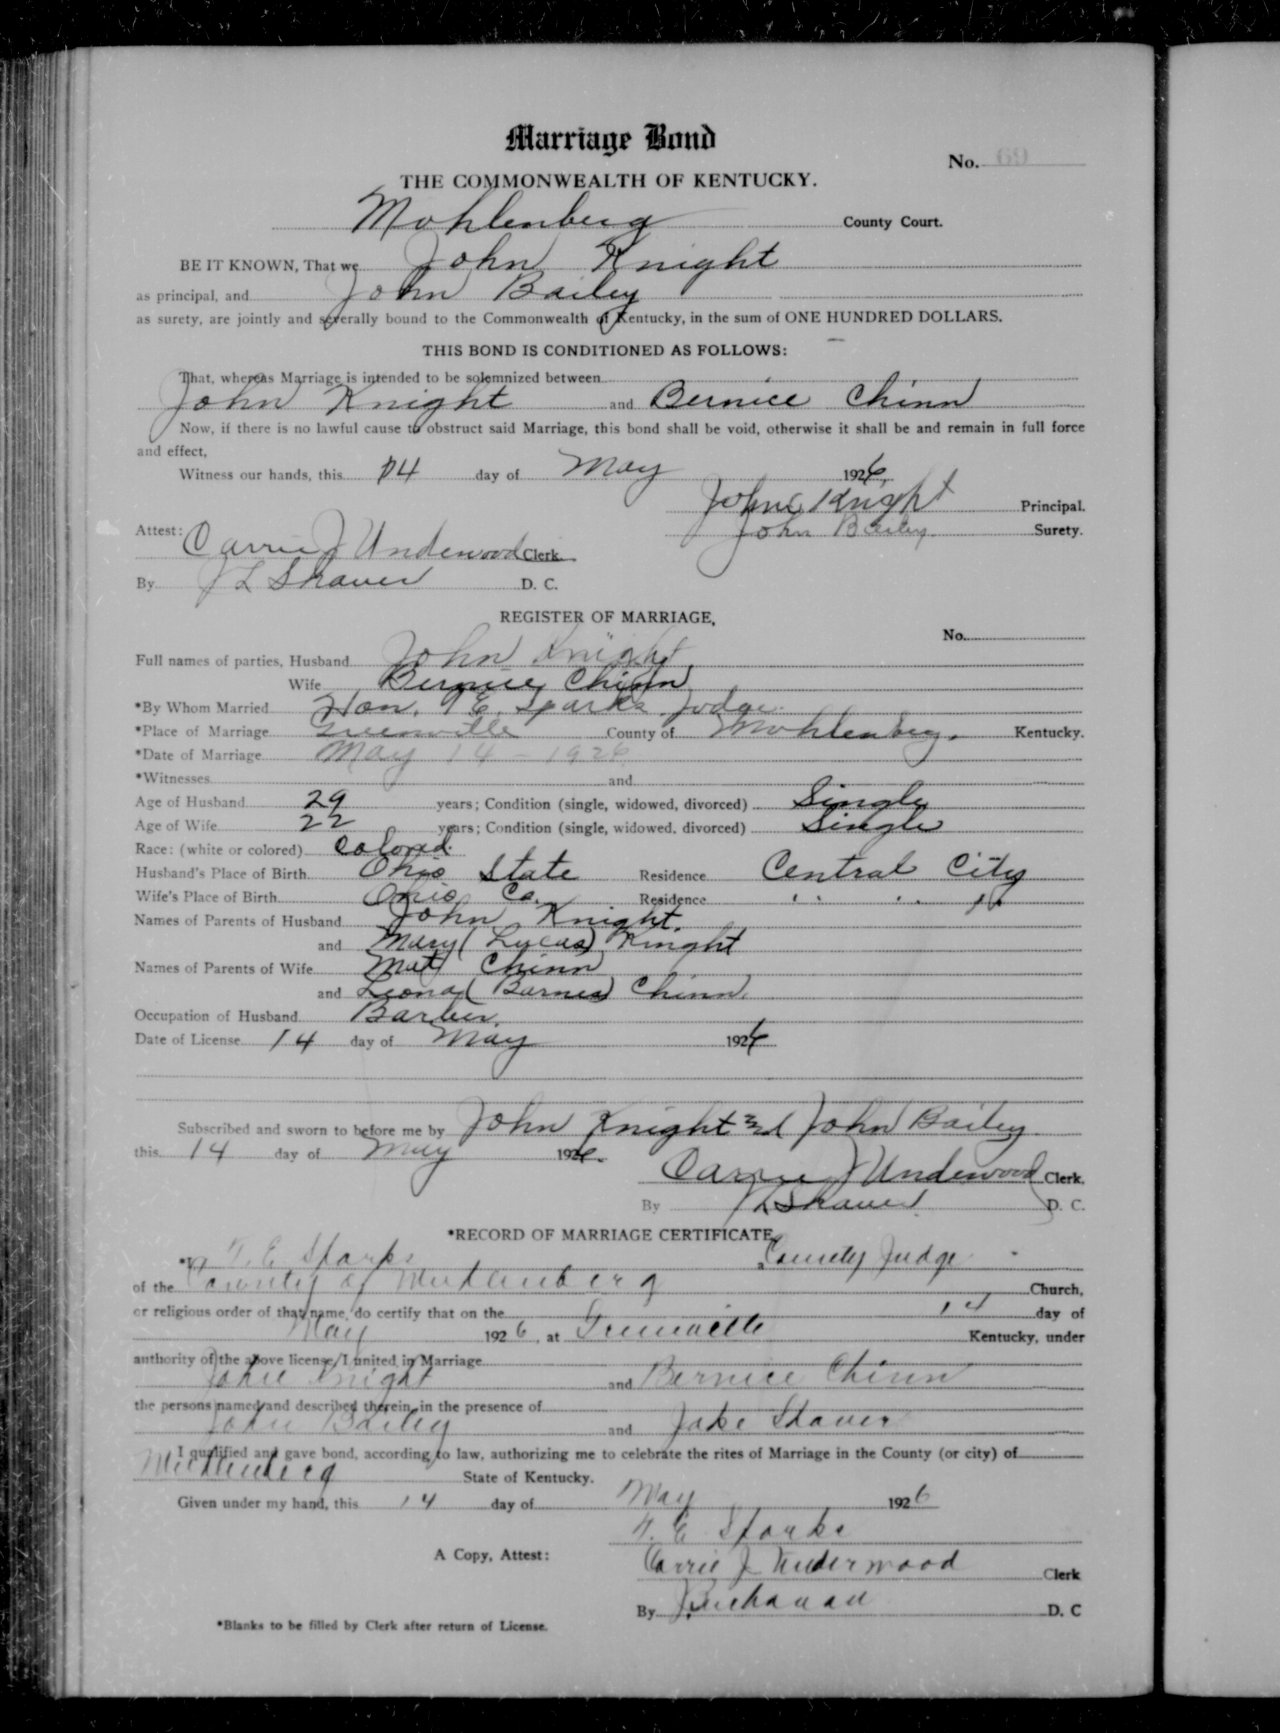 Marriage Bond
No. 69
THE COMMONWEALTH OF KENTUCKY.
Mohlenberg County Court.
BE IT KNOWN, That we John Knight
as principal, and John Bailey
as surety, are jointly and severally bound to the Commonwealth of Kentucky, in the sum of ONE HUNDRED DOLLARS.
THIS BOND IS CONDITIONED AS FOLLOWS:
That, whereas Marriage is intended to be solemnized between
John Knight and Bernice Chinn
Now, if there is no lawful cause to obstruct said Marriage, this bond shall be void, otherwise it shall be and remain in full force
and effect,
Witness our hands, this 14 day of May 1926.
John Knight Principal.
John Bailey. Surety.
Attest: Carrie J Underwood Clerk
By J L Shaver D. C.
REGISTER OF MARRIAGE,
No.
Full names of parties, Husband John Knight
Wife Bernice Chinn
*By Whom Married Hon. T E. Sparks Judge.
*Place of Marriage Greenville County of Mohlenberg. Kentucky.
*Date of Marriage May 14 - 1926
*Witnesses and
Age of Husband 29 years; Condition (single, widowed, divorced) Single
Age of Wife 22 years; Condition (single, widowed, divorced) Single
Race: (white or colored) Colored.
Husband's Place of Birth Ohio State Residence Central City
Wife's Place of Birth Ohio Co. Residence " " "
Names of Parents of Husband John Knight.
and Mary (Lucas) Knight
Names of Parents of Wife Mat Chinn
and Leona (Barnes) Chinn.
Occupation of Husband Barber.
Date of License 14 day of May 1926
Subscribed and sworn to before me by John Knight and John Bailey
this 14 day of May 1926.
Carrie J Underwood Clerk.
By J L Shaver D. C.
*RECORD OF MARRIAGE CERTIFICATE
*I, T. E. Sparks, County Judge
of the County of Muhlenberg Church,
or religious order of that name, do certify that on the 14 day of
May 1926, at Greenville Kentucky, under
authority of the above license, I united in Marriage
John Knight and Bernice Chinn
the persons named and described therein, in the presence of
John Bailey and Jake Shaver
I qualified and gave bond, according to law, authorizing me to celebrate the rites of Marriage in the County (or city) of
Muhlenberg State of Kentucky.
Given under my hand, this 14 day of May 1926
T. E. Sparks
A Copy, Attest: Carrie J Underwood Clerk
By Buchanan D. C
*Blanks to be filled by Clerk after return of License.